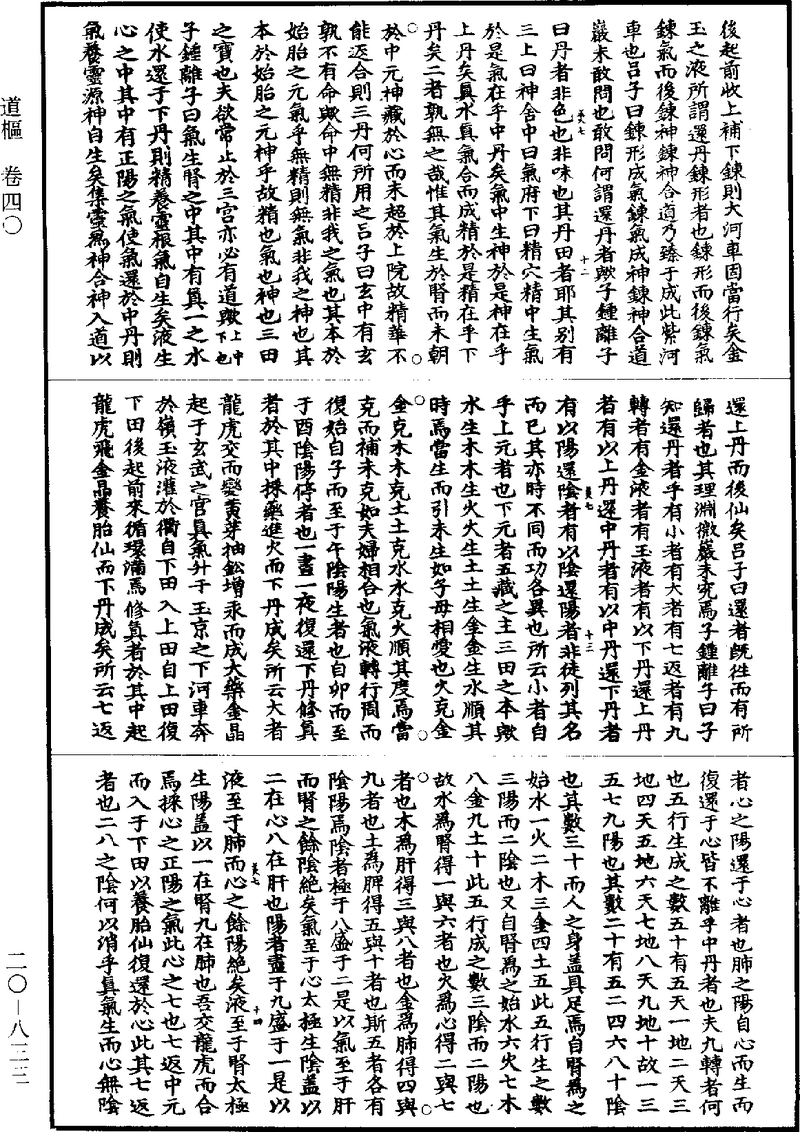 道樞 卷四〇
二〇—八三三
後起前收上補下鍊則大河車因當行矣金
玉之液所謂還丹鍊形者也鍊形而後鍊氣
鍊氣而後鍊神鍊神合道乃臻于成此紫河
車也呂子曰鍊形成氣鍊氣成神鍊神合道
巖未敢問也敢問何謂還丹者歟子鍾離子
曰丹者非色也非味也其丹田者耶其別有
三上曰神舍中曰氣府下曰精穴精中生氣
於是氣在乎中丹矣氣中生神於是神在乎
上丹矣真水真氣合而成精於是精在乎下
丹矣二者孰無之哉惟其氣生於腎而未朝
於中元神藏於心而未超於上院故精華不
能返合則三丹何所用之呂子曰玄中有玄
孰不有命歟命中無精非我之氣也其本於
始胎之元氣乎無精則無氣非我之神也其
本於始胎之元神乎故精也氣也神也三田
之寶也夫欲常止於三宮亦必有道歟上中下也
子鍾離子曰氣生腎之中其中有真一之水
使水還于下丹則精養靈根氣自生矣液生
心之中其中有正陽之氣使氣還於中丹則
氣養靈源神自生矣集靈為神合神入道以
還上丹而後仙矣呂子曰還者既往而有所
歸者也其理淵微巖未究焉子鍾離子曰子
知還丹者乎有小者有大者有七返者有九
轉者有金液者有玉液者有以下丹還上丹
者有以上丹還中丹者有以中丹還下丹者
有以陽還陰者有以陰還陽者非徒列其名
而已其亦時不同而功各異也所云小者自
乎上元者也下元者五藏之主三田之本歟
水生木木生火火生土土生金金生水順其
時焉當生而引未生如子母相愛也火克金
金克木木克土土克水水克火順其度焉當
克而補未克如夫婦相合也氣液轉行周而
復始自子而至于午陰陽生者也自卯而至
于酉陰陽停者也一晝一夜復還下丹修真
者於其中採藥進火而下丹成矣所云大者
龍虎交而變黃芽抽鉛增汞而成大藥金晶
起于玄武之宮真氣升于玉京之下河車奔
於嶺玉液灌於衢自下田入上田自上田復
下田後起前來循環滿焉修真者於其中起
龍虎飛金晶養胎仙而下丹成矣所云七返
者心之陽還于心者也肺之陽自心而生而
復還于心皆不離乎中丹者也夫九轉者何
也五行生成之數五十有五天一地二天三
地四天五地六天七地八天九地十故一三
五七九陽也其數二十有五二四六八十陰
也其數三十而人之身蓋具足焉自腎為之
始水一火二木三金四土五此五行生之數
三陽而二陰也又自腎為之始水六火七木
八金九土十此五行成之數三陰而二陽也
故水為腎得一與六者也火為心得二與七
者也木為肝得三與八者也金為肺得四與
九者也土為脾得五與十者也斯五者各有
陰陽焉陰者極于八盛于二是以氣至于肝
而腎之餘陰絕矣氣至于心太極生陰蓋以
二在心八在肝也陽者盡于九盛于一是以
液至于肺而心之餘陽絕矣液至于腎太極
生陽蓋以一在腎九在肺也吾交龍虎而合
焉採心之正陽之氣此心之七也七返中元
而入于下田以養胎仙復還於心此其七返
者也二八之陰何以消乎真氣生而心無陰